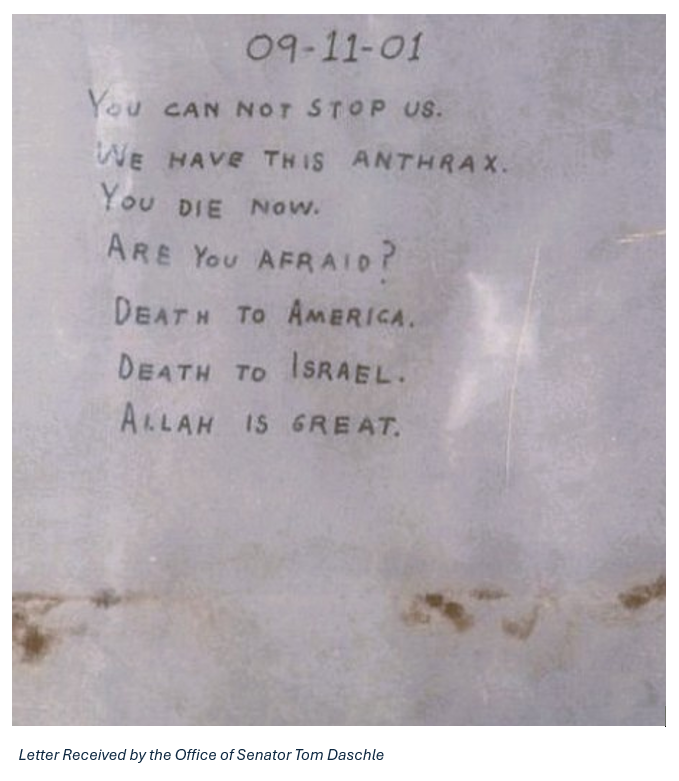 09-11-01
YOU CAN NOT STOP US.
WE HAVE THIS ANTHRAX.
YOU DIE NOW.
ARE YOU AFRAID?
DEATH TO AMERICA.
DEATH TO ISRAEL.
ALLAH IS GREAT.
Letter Received by the Office of Senator Tom Daschle